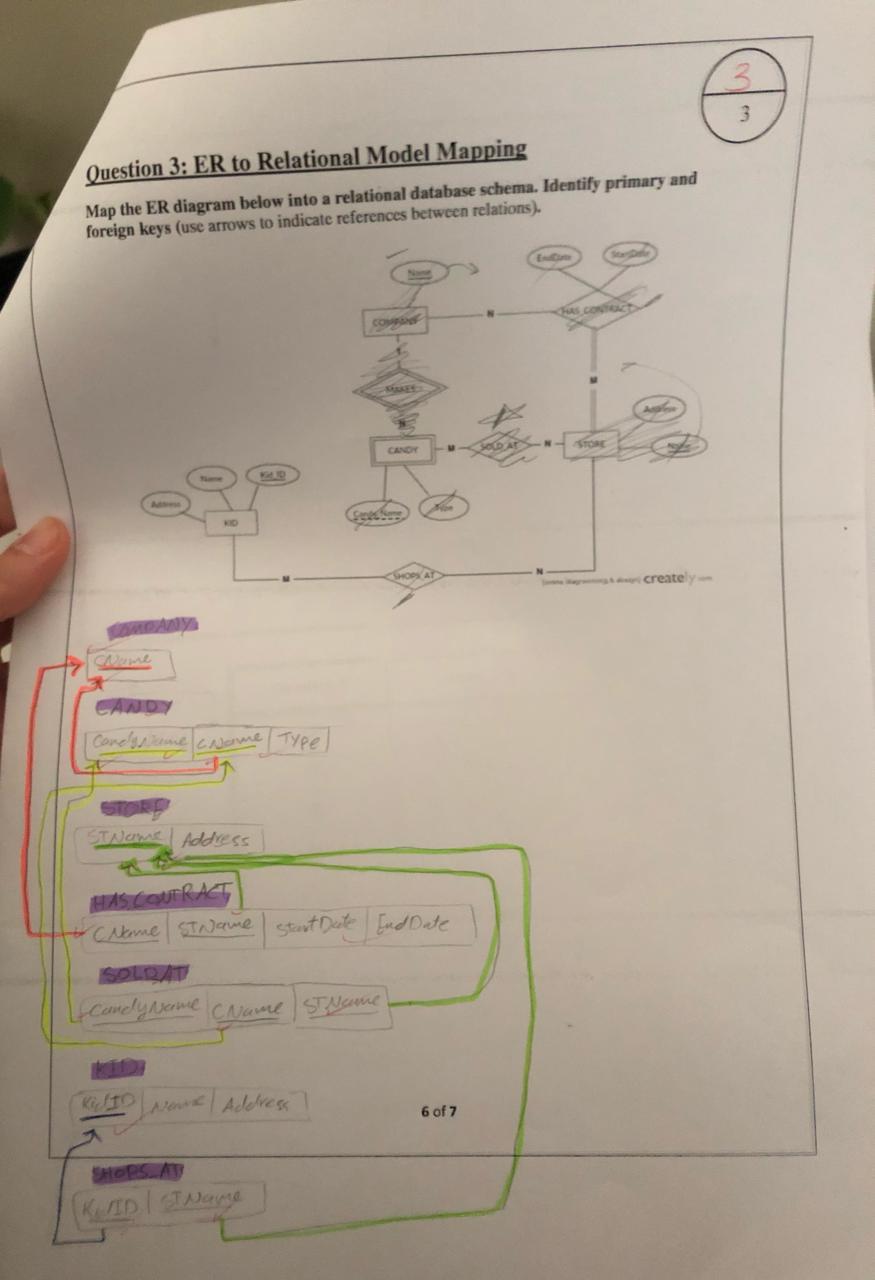 3
3
Question 3: ER to Relational Model Mapping
Map the ER diagram below into a relational database schema. Identify primary and
foreign keys (use arrows to indicate references between relations).
Name
EndDate
StartDate
COMPANY
N
HAS_CONTRACT
1
MAKES
M
N
Address
CANDY
M
SOLD_AT
N
STORE
Name
Name
Kid_ID
Address
Candy_Name
Type
KID
M
SHOPS_AT
N
creately.com
COMPANY
CName
CANDY
CandyName CName Type
STORE
STName Address
HAS_CONTRACT
CName STName StartDate EndDate
SOLD_AT
CandyName CName STName
KID
KidID Name Address
6 of 7
SHOPS_AT
KidID STName